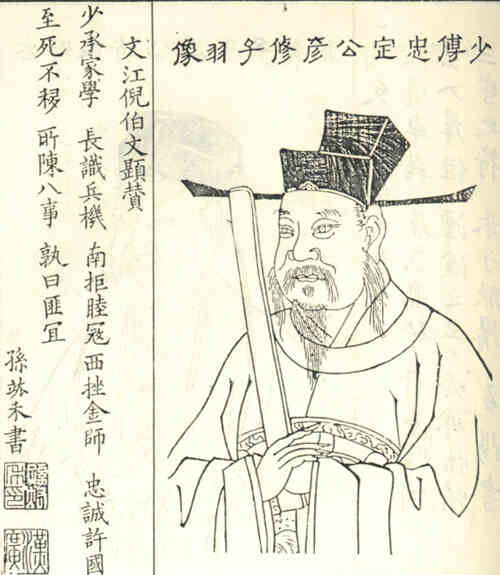 少傅忠定公彥修子羽像
文江倪伯文顯贊
少承家學 長識兵機 南拒睦冦 西挫金師 忠誠許國
至死不移 所陳八事 孰曰匪冝
孫 禾書
漢廣